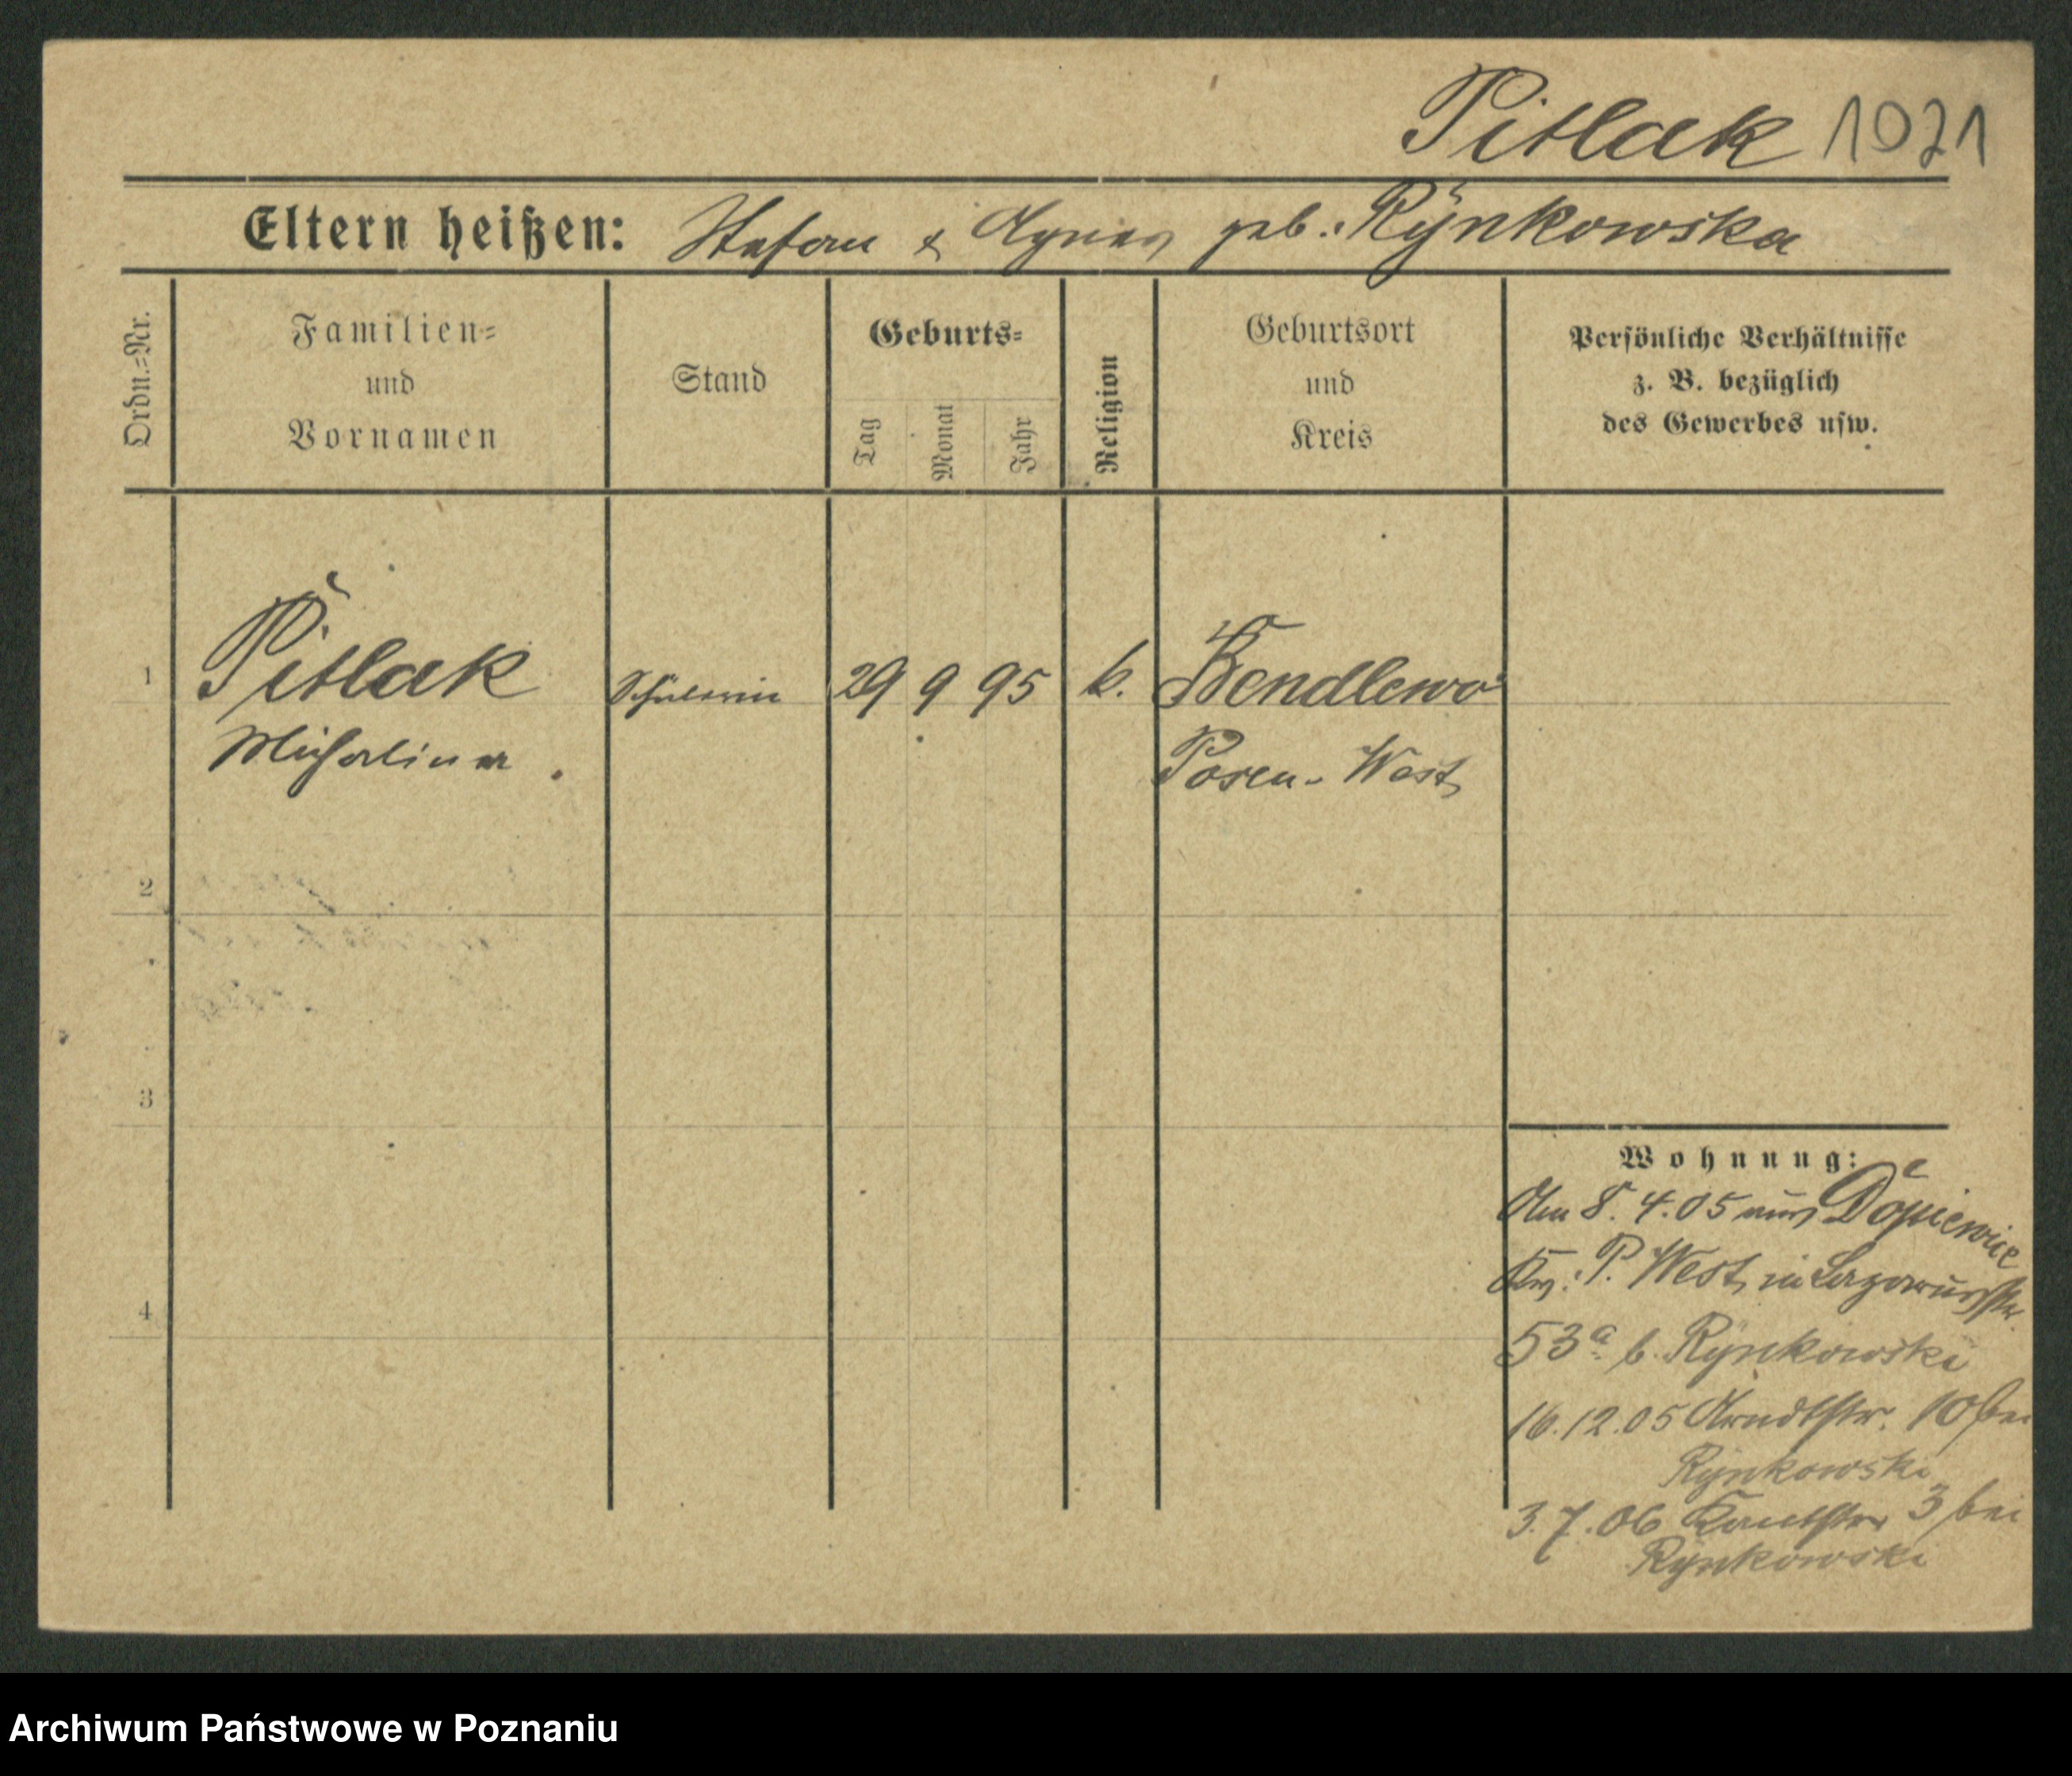 Pitlak 1021
Eltern heißen: Stefan & Agnes geb. Rynkowska
Ordn.=Nr.
Familien=
und
Vornamen
Stand
Geburts=
Tag
Monat
Jahr
Religion
Geburtsort
und
Kreis
Persönliche Verhältnisse
z. B. bezüglich
des Gewerbes usw.
1 Pitlak Schülerin 29 9 95 k. Bendlewo
Michalina. Posen-West
2
3
4
Wohnung:
Am 8. 4. 05 aus Dopiewice
P. West in
53a b. Rynkowski
16.12.05 Arndtstr. 10 bei
Rynkowski
3.7.06 Kantstr 3 bei
Rynkowski
Archiwum Państwowe w Poznaniu